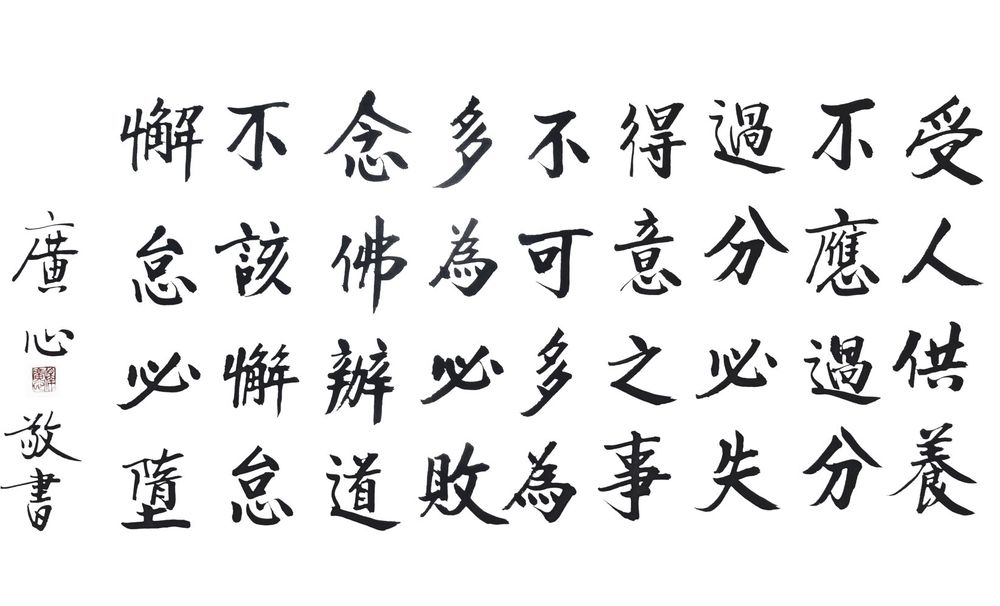 受人供養
不應過分
過分必失
得意之事
不可多為
多為必敗
念佛辦道
不該懈怠
懈怠必墮
廣心敬書